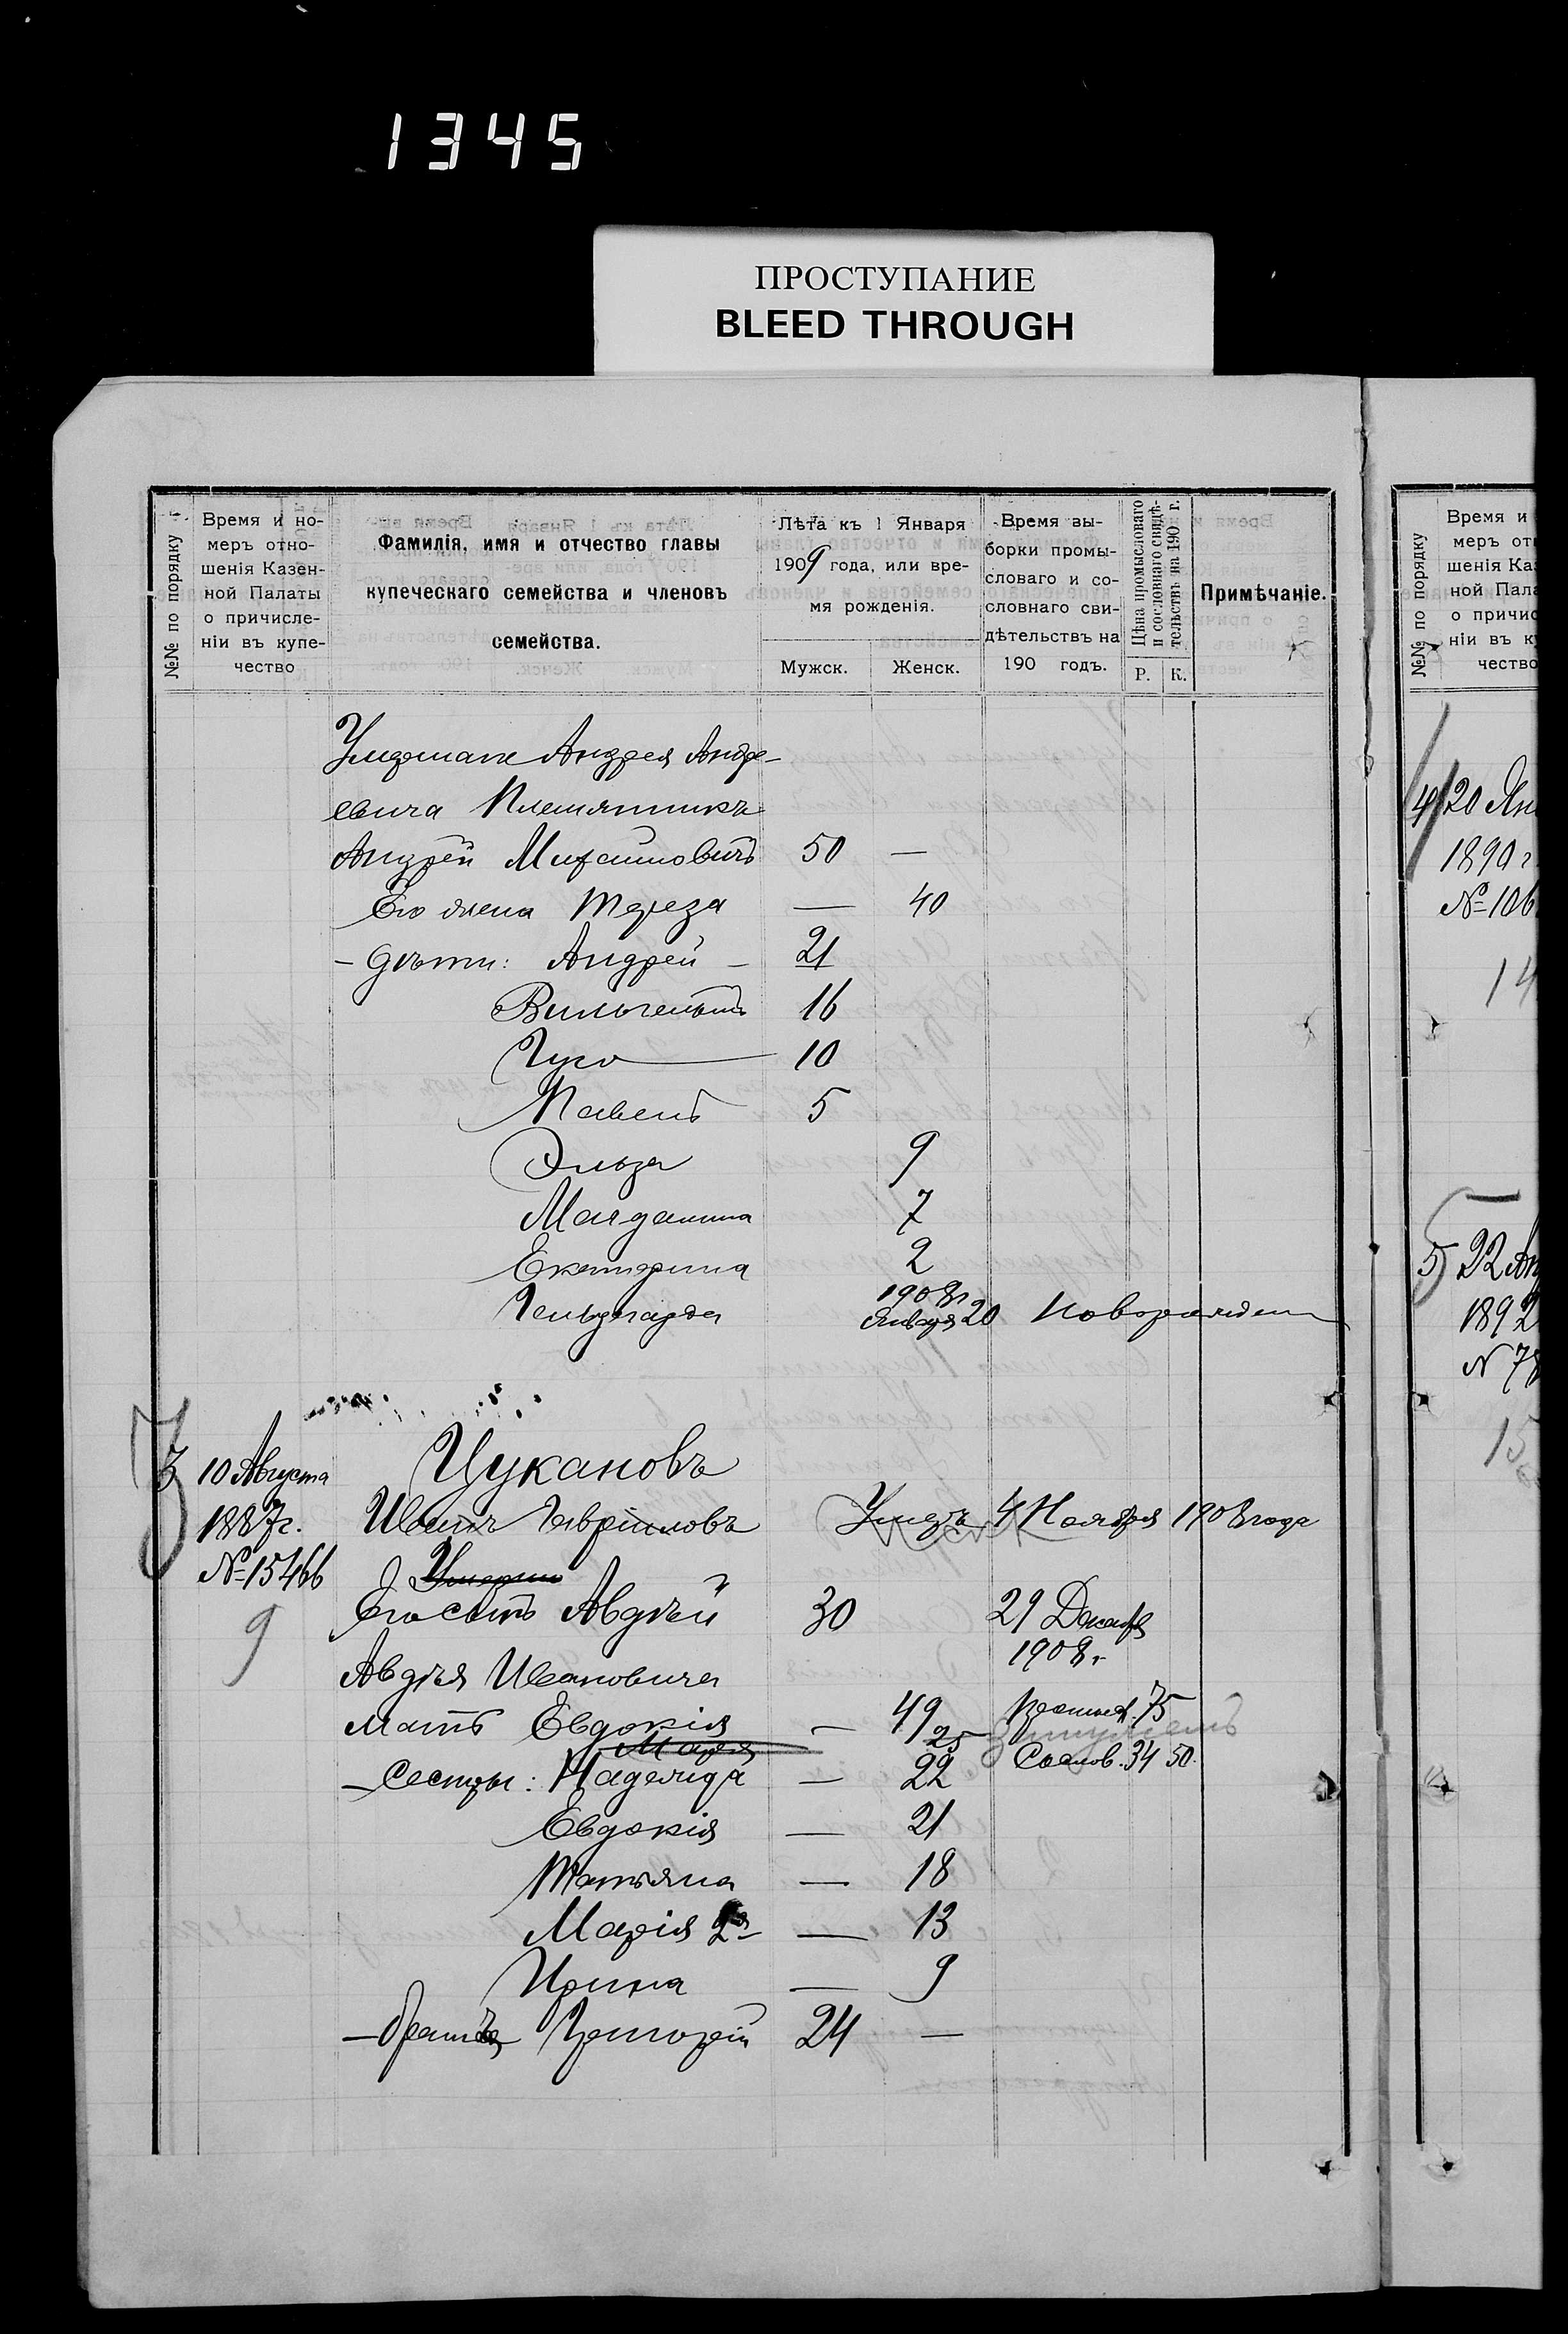 1345
ПРОСТУПАНИЕ
BLEED THROUGH
№№ по порядку
Время и но-
меръ отно-
шенія Казен-
ной Палаты
о причисле-
ніи въ купе-
чество
Фамилія, имя и отчество главы
купеческаго семейства и членовъ
семейства.
Лѣта къ 1 Января
1909 года, или вре-
мя рожденія.
Мужск. Женск.
Время вы-
борки промы-
словаго и со-
словнаго сви-
дѣтельствъ на
190 годъ.
Цѣна промысловаго
и сословнаго свидѣ-
тельствъ на 190 г.
Р. К.
Примѣчаніе.
Андрея Андре-
евича Племянникъ
Андрей Михайловичъ 50 —
Его жена Тереза — 40
– Дѣти: Андрей – 21
Вильгельмъ 16
Гуго 10
Павелъ 5
Эльза 9
Магдалина 7
Екатерина 2
Гельдегарда 1908 г.
Января 20 Новорожден
3 10 Августа
1887 г.
№ 15466
9
Цукановъ
Иванъ Гавриловъ Умеръ 4 Ноября 1908 года
Умерш
Его сынъ Авдѣй 30 29 Декабр
1908 г.
Авдѣя Ивановича
мать Евдокія — 49 Промысл. 75
Марія 25
– Сестры: Надежда — 22 Сослов. 34 50
Евдокія — 21
Татьяна — 18
Марія 2я — 13
Ирина — 9
– братъ Григорій 24 —
№№ по порядку
Время и
меръ от
шенія Ка
ной Пала
о причис
ніи въ к
чество
4 20 Ян
1890 г
№ 106
14
5 22 Ап
1892
№ 78
15